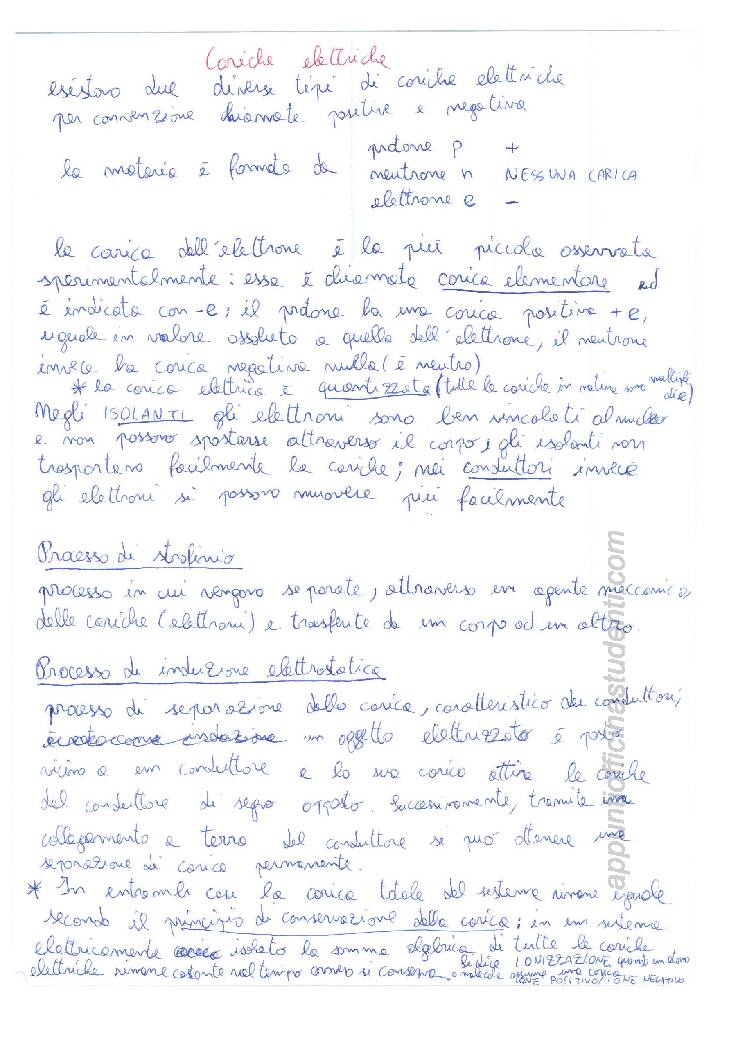 Cariche elettriche
esistono due diverse tipi di cariche elettriche
per convenzione chiamate positive e negative
protone p +
la materia è formata da neutrone n NESSUNA CARICA
elettrone e -
la carica dell'elettrone è la più piccola osservata
sperimentalmente: essa è chiamata carica elementare ed
è indicata con -e; il protone ha una carica positiva +e,
uguale in valore assoluto a quella dell'elettrone, il neutrone
invece ha carica negativa nulla (è neutro)
* la carica elettrica è quantizzata (tutte le cariche in natura sono multipli di e)
Negli ISOLANTI gli elettroni sono ben vincolati al nucleo
e non possono spostarse attraverso il corpo, gli isolanti non
trasportano facilmente la cariche; nei conduttori invece
gli elettroni si possono muovere più facilmente
Processo di strofinio
processo in cui vengono separate, attraverso un agente meccanico,
delle cariche (elettroni) e trasferite da un corpo ad un altro.
Processo di induzione elettrostatica
processo di separazione della carica, caratteristico dei conduttori;
un oggetto elettrizzato è posto
vicino a un conduttore e la sua carica attira le cariche
del conduttore di segno opposto. Successivamente, tramite un
collegamento a terra del conduttore si può ottenere una
separazione di carica permanente.
* In entrambi casi la carica totale del sistema rimane uguale
secondo il principio di conservazione della carica; in un sistema
elettricamente isolato la somma algebrica di tutte le cariche
elettriche rimane costante nel tempo ovvero si conserva
Si dice IONIZZAZIONE quando un atomo
o molecola assume una carica
IONE POSITIVO/IONE NEGATIVO
appuntiofficinastudenti.com